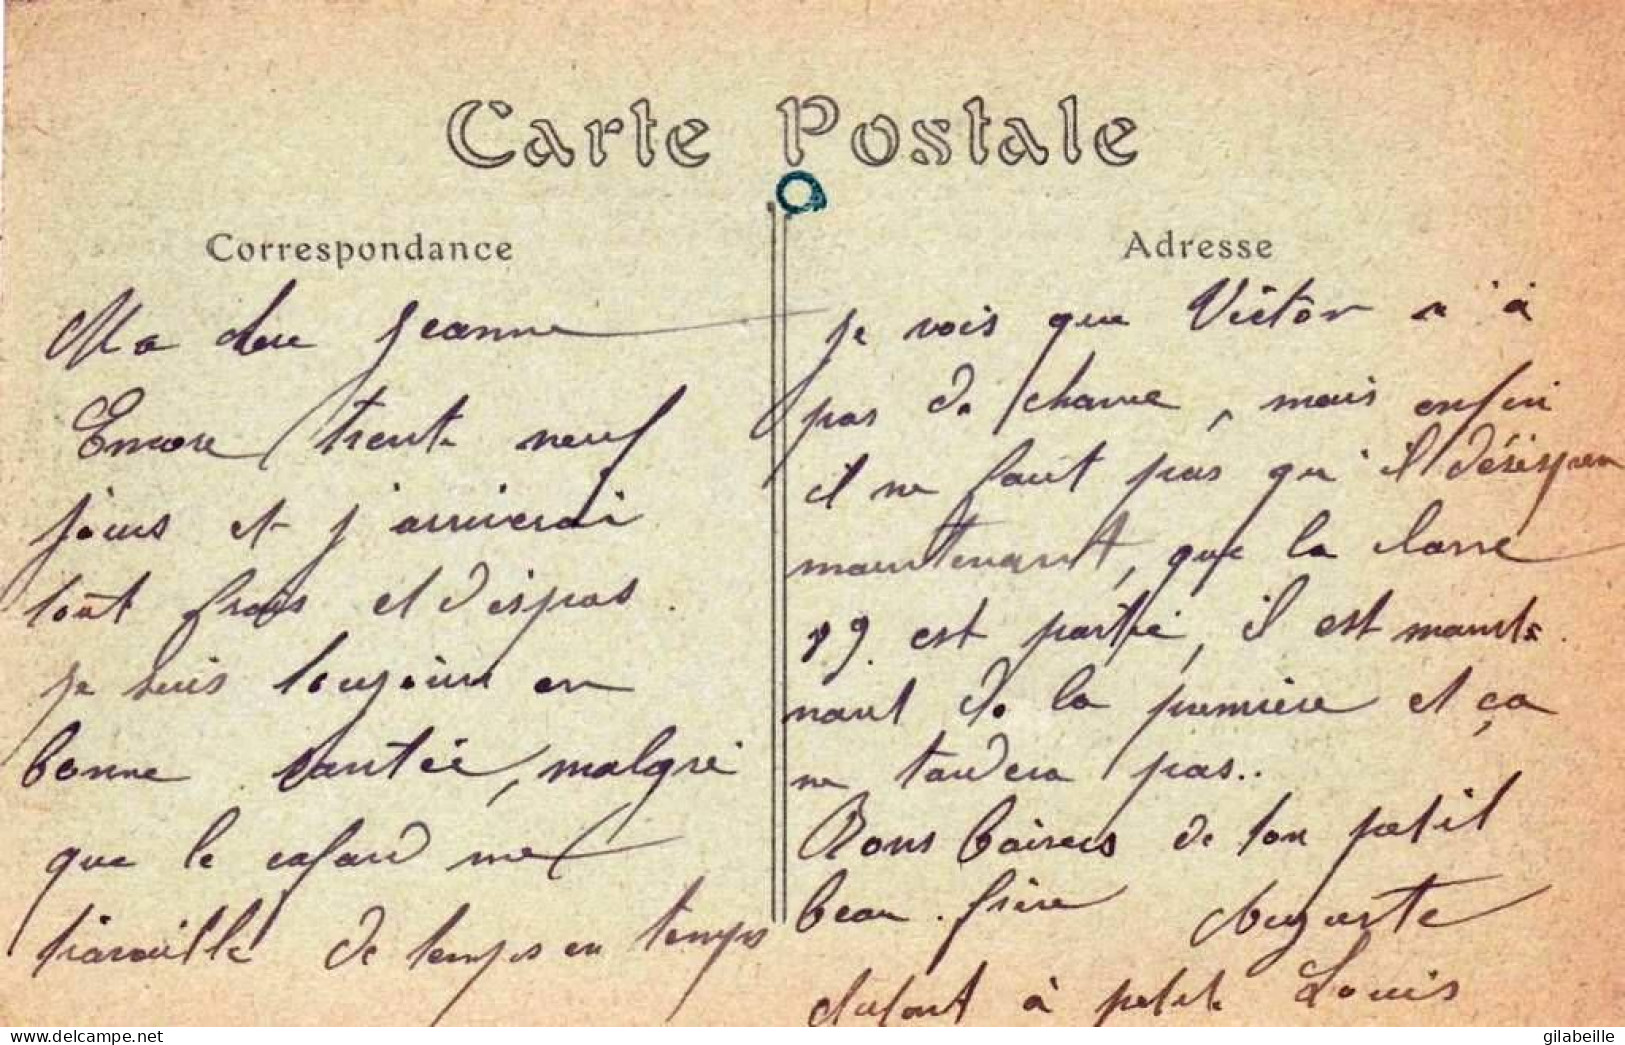 Carte Postale
Correspondance
Ma chere Jeanne
Encore trente neuf
jours et j'arriverai
tout frais et dispos.
je suis toujours en
bonne santée, malgré
que le cafard me
travaille de temps en temps
Adresse
je vois que Victor n'à
pas de chance, mais enfin
il ne faut pas qu'il désésper
maintenant, que la classe
19 est partie, il est mainte
nant de la première et ça
ne tardera pas..
Bons baisers de ton petit
beau-frère Auguste
à petit Louis
gilabeille